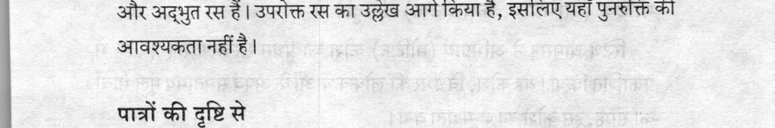 और अद्भुत रस हैं। उपरोक्त रस का उल्लेख आगे किया है, इसलिए यहाँ पुनरुक्ति की
आवश्यकता नहीं है।
पात्रों की दृष्टि से